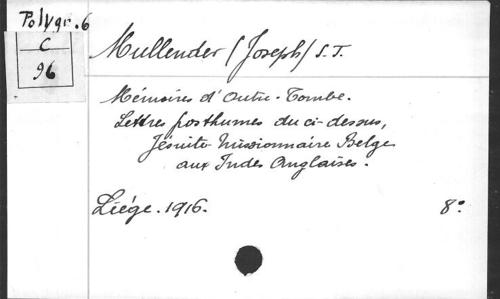 Polygr. 6
C
96
Mullender (Joseph) S.J.
Mémoires d'Outre-Tombe.
Lettres posthumes du ci-dessus,
Jésuite Missionnaire Belge
aux Indes Anglaises.
Liége. 1916.
8º